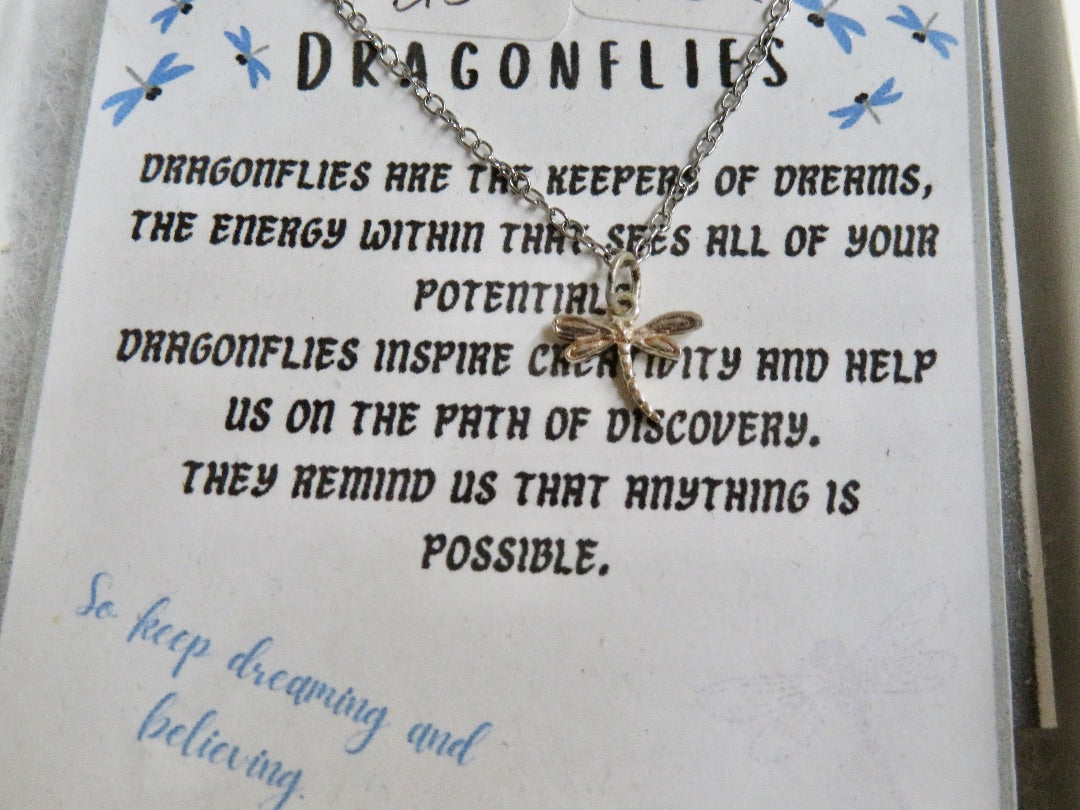 DRAGONFLIES
DRAGONFLIES ARE THE KEEPERS OF DREAMS,
THE ENERGY WITHIN THAT SEES ALL OF YOUR
POTENTIAL.
DRAGONFLIES INSPIRE CREATIVITY AND HELP
US ON THE PATH OF DISCOVERY.
THEY REMIND US THAT ANYTHING IS
POSSIBLE.
So keep dreaming and
believing.